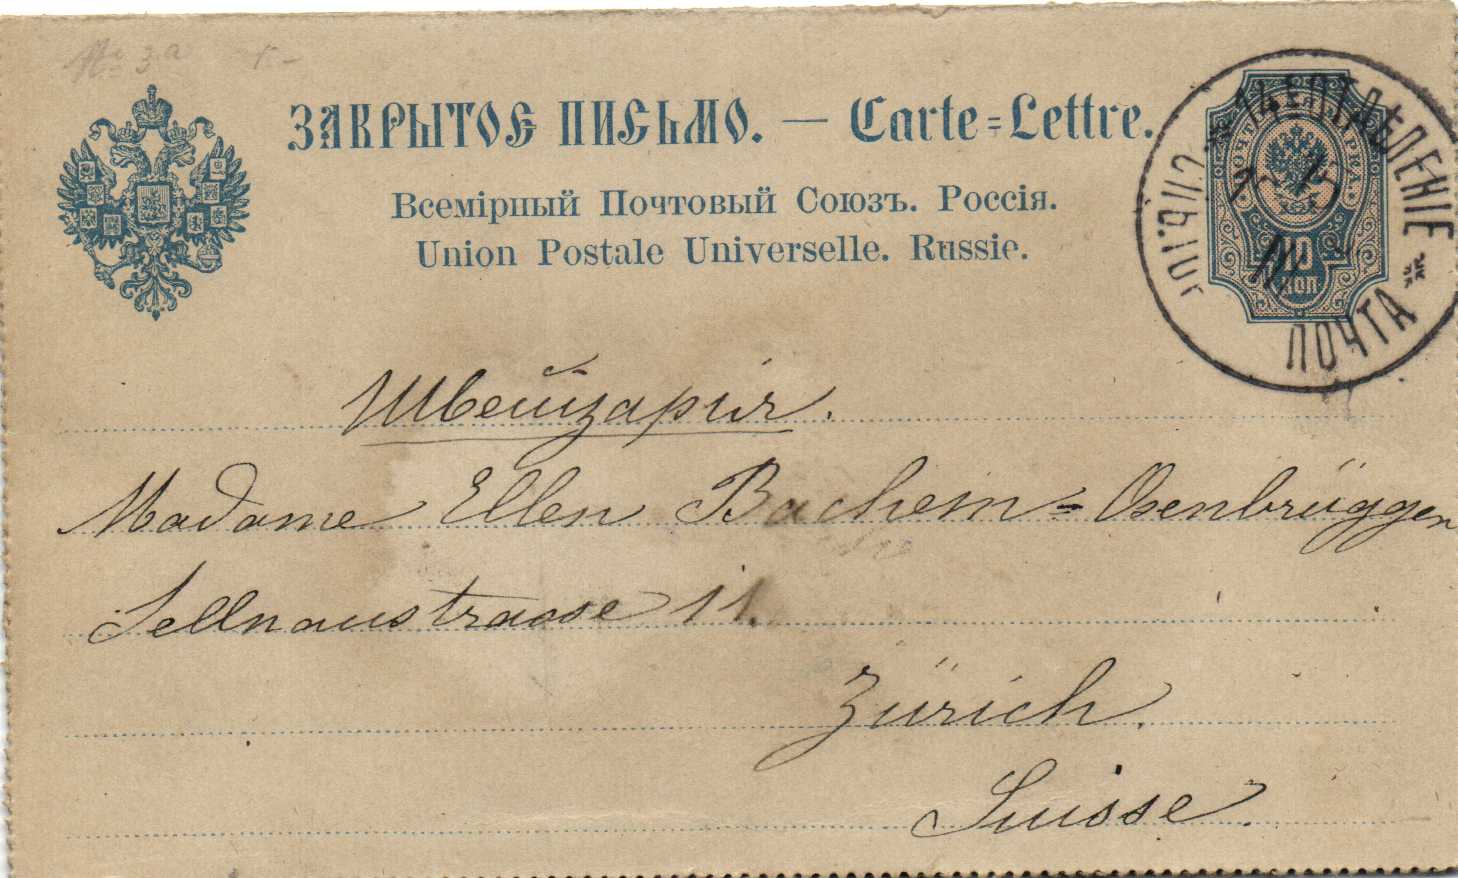 № 3a
ЗАКРЫТОЕ ПИСЬМО. — Carte=Lettre.
Всемірный Почтовый Союзъ. Россія.
Union Postale Universelle. Russie.
14 ОТДѢЛЕНІЕ
ПОЧТА
10
КОП
Швейцарія.
Madame Ellen Bachem=Osenbrüggen
Sellnaustrasse 11.
Zürich.
Suisse.